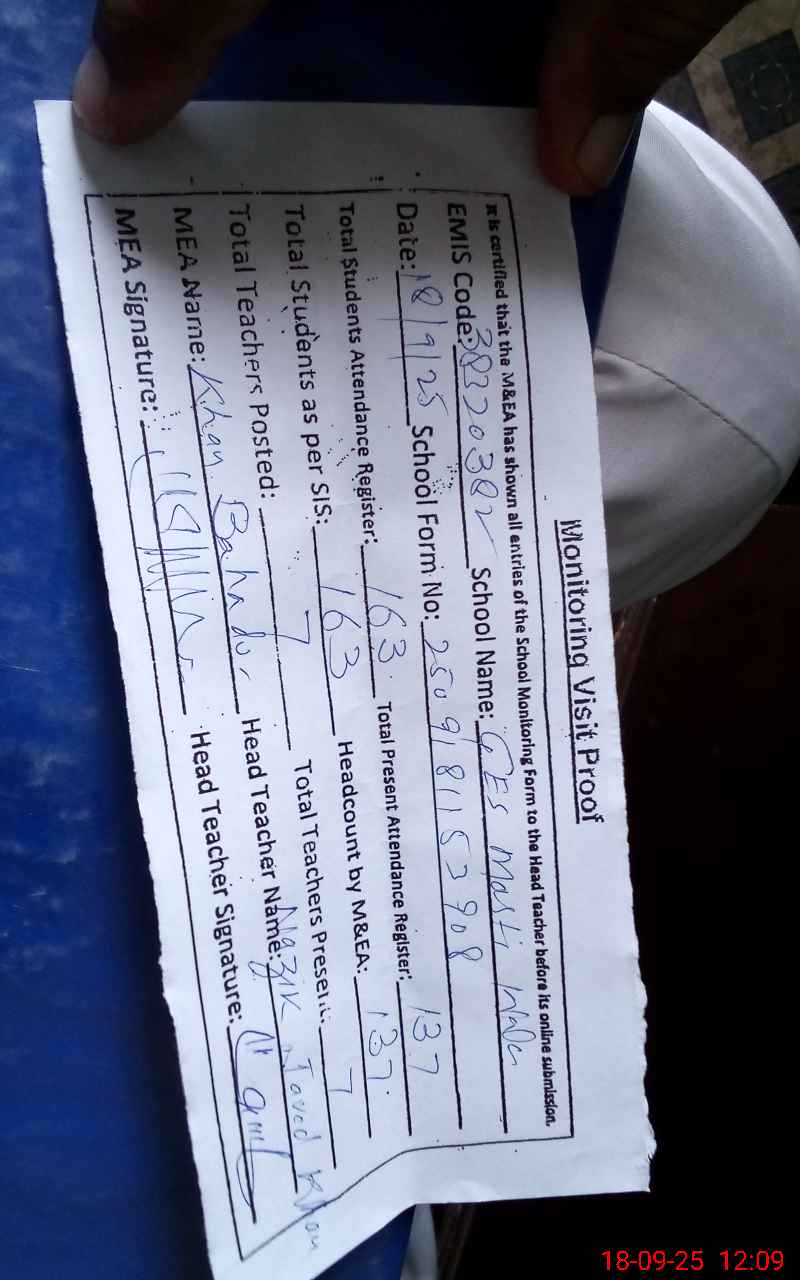 Monitoring Visit Proof
It is certified that the M&EA has shown all entries of the School Monitoring Form to the Head Teacher before its online submission.
EMIS Code: 38320382 School Name: GES Masti Wala
Date: 18/9/25 School Form No: 2509181152908
Total Students Attendance Register: 163 Total Present Attendance Register: 137
Total Students as per SIS: 163 Headcount by M&EA: 137
Total Teachers Posted: 7 Total Teachers Present: 7
MEA Name: Khan Bahadur Head Teacher Name: Nazik Javed Khan
MEA Signature: Head Teacher Signature:
18-09-25 12:09